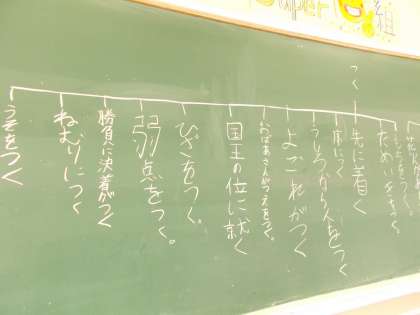 組
つく
ためいきをつく
先に着く
床につく
うしろから人をつく
よごれがつく
おばあさんがつえをつく。
国王の位に就く
ひざをつく。
弱点をつく。
勝負に決着がつく
ねむりにつく
うそをつく